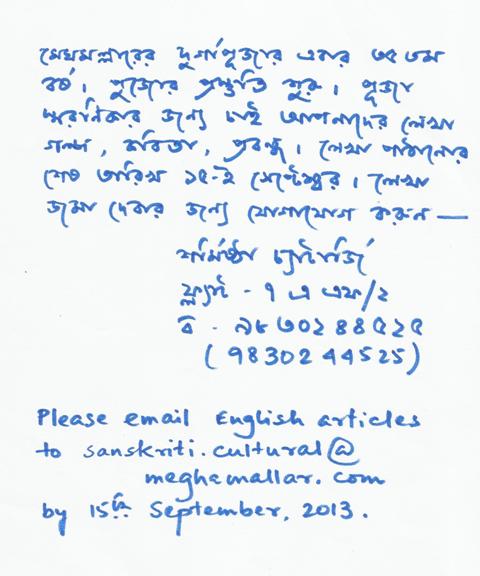 মেঘমল্লারের দুর্গাপূজার এবার ৩৫ তম
বর্ষ। পুজোর প্রস্তুতি শুরু। পূজা
স্মরণিকার জন্য চাই আপনাদের লেখা
গল্প, কবিতা, প্রবন্ধ। লেখা পাঠানোর
শেষ তারিখ ১৫-ই সেপ্টেম্বর। লেখা
জমা দেবার জন্য যোগাযোগ করুন —
শর্মিষ্ঠা চ্যাটার্জি
ফ্ল্যাট - ৭ এ এফ/২
ৰি - ৯৮৩০২৪৪৫২৫
(9830244525)
Please email English articles
to sanskriti.cultural@
meghamallar.com
by 15th September, 2013.